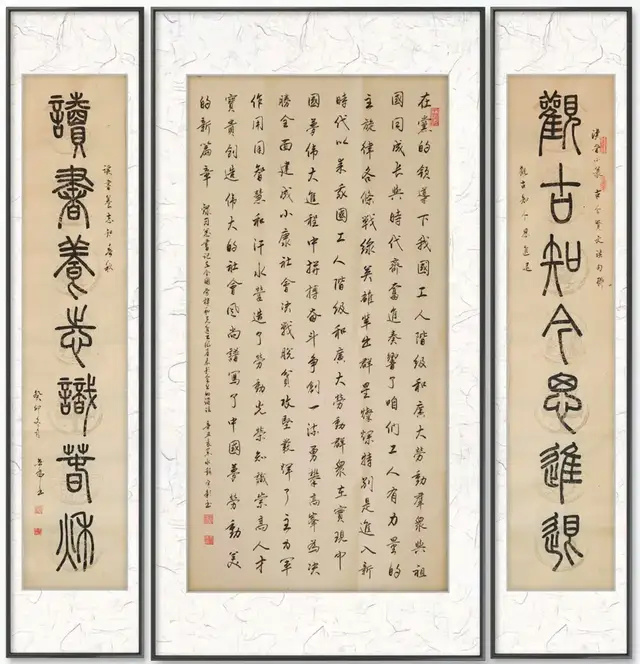 觀古知今思進退
觀古知今思進退
在黨的領導下我國工人階級和廣大勞動羣衆與祖
國同成長與時代齊奮進奏響了咱們工人有力量的
主旋律各條戰線英雄輩出群星燦爍特別是進入新
時代以來我國工人階級和廣大勞動群衆在實現中
國夢偉大進程中拼搏奮斗爭創一流勇攀高峯為決
勝全面建成小康社會決戰脫貧攻堅發揮了主力軍
作用用智慧和汗水營造了勞動光榮知識崇高人才
寶貴創造偉大的社會風尚譜寫了中國夢勞動美
的新篇章
讀書養志識春秋
讀書養志知春秋
癸卯冬月